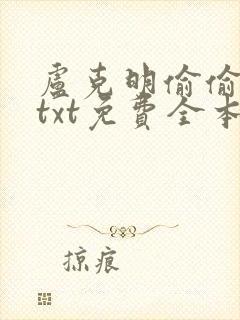 盧克明偷偷
txt免費全本
掠痕